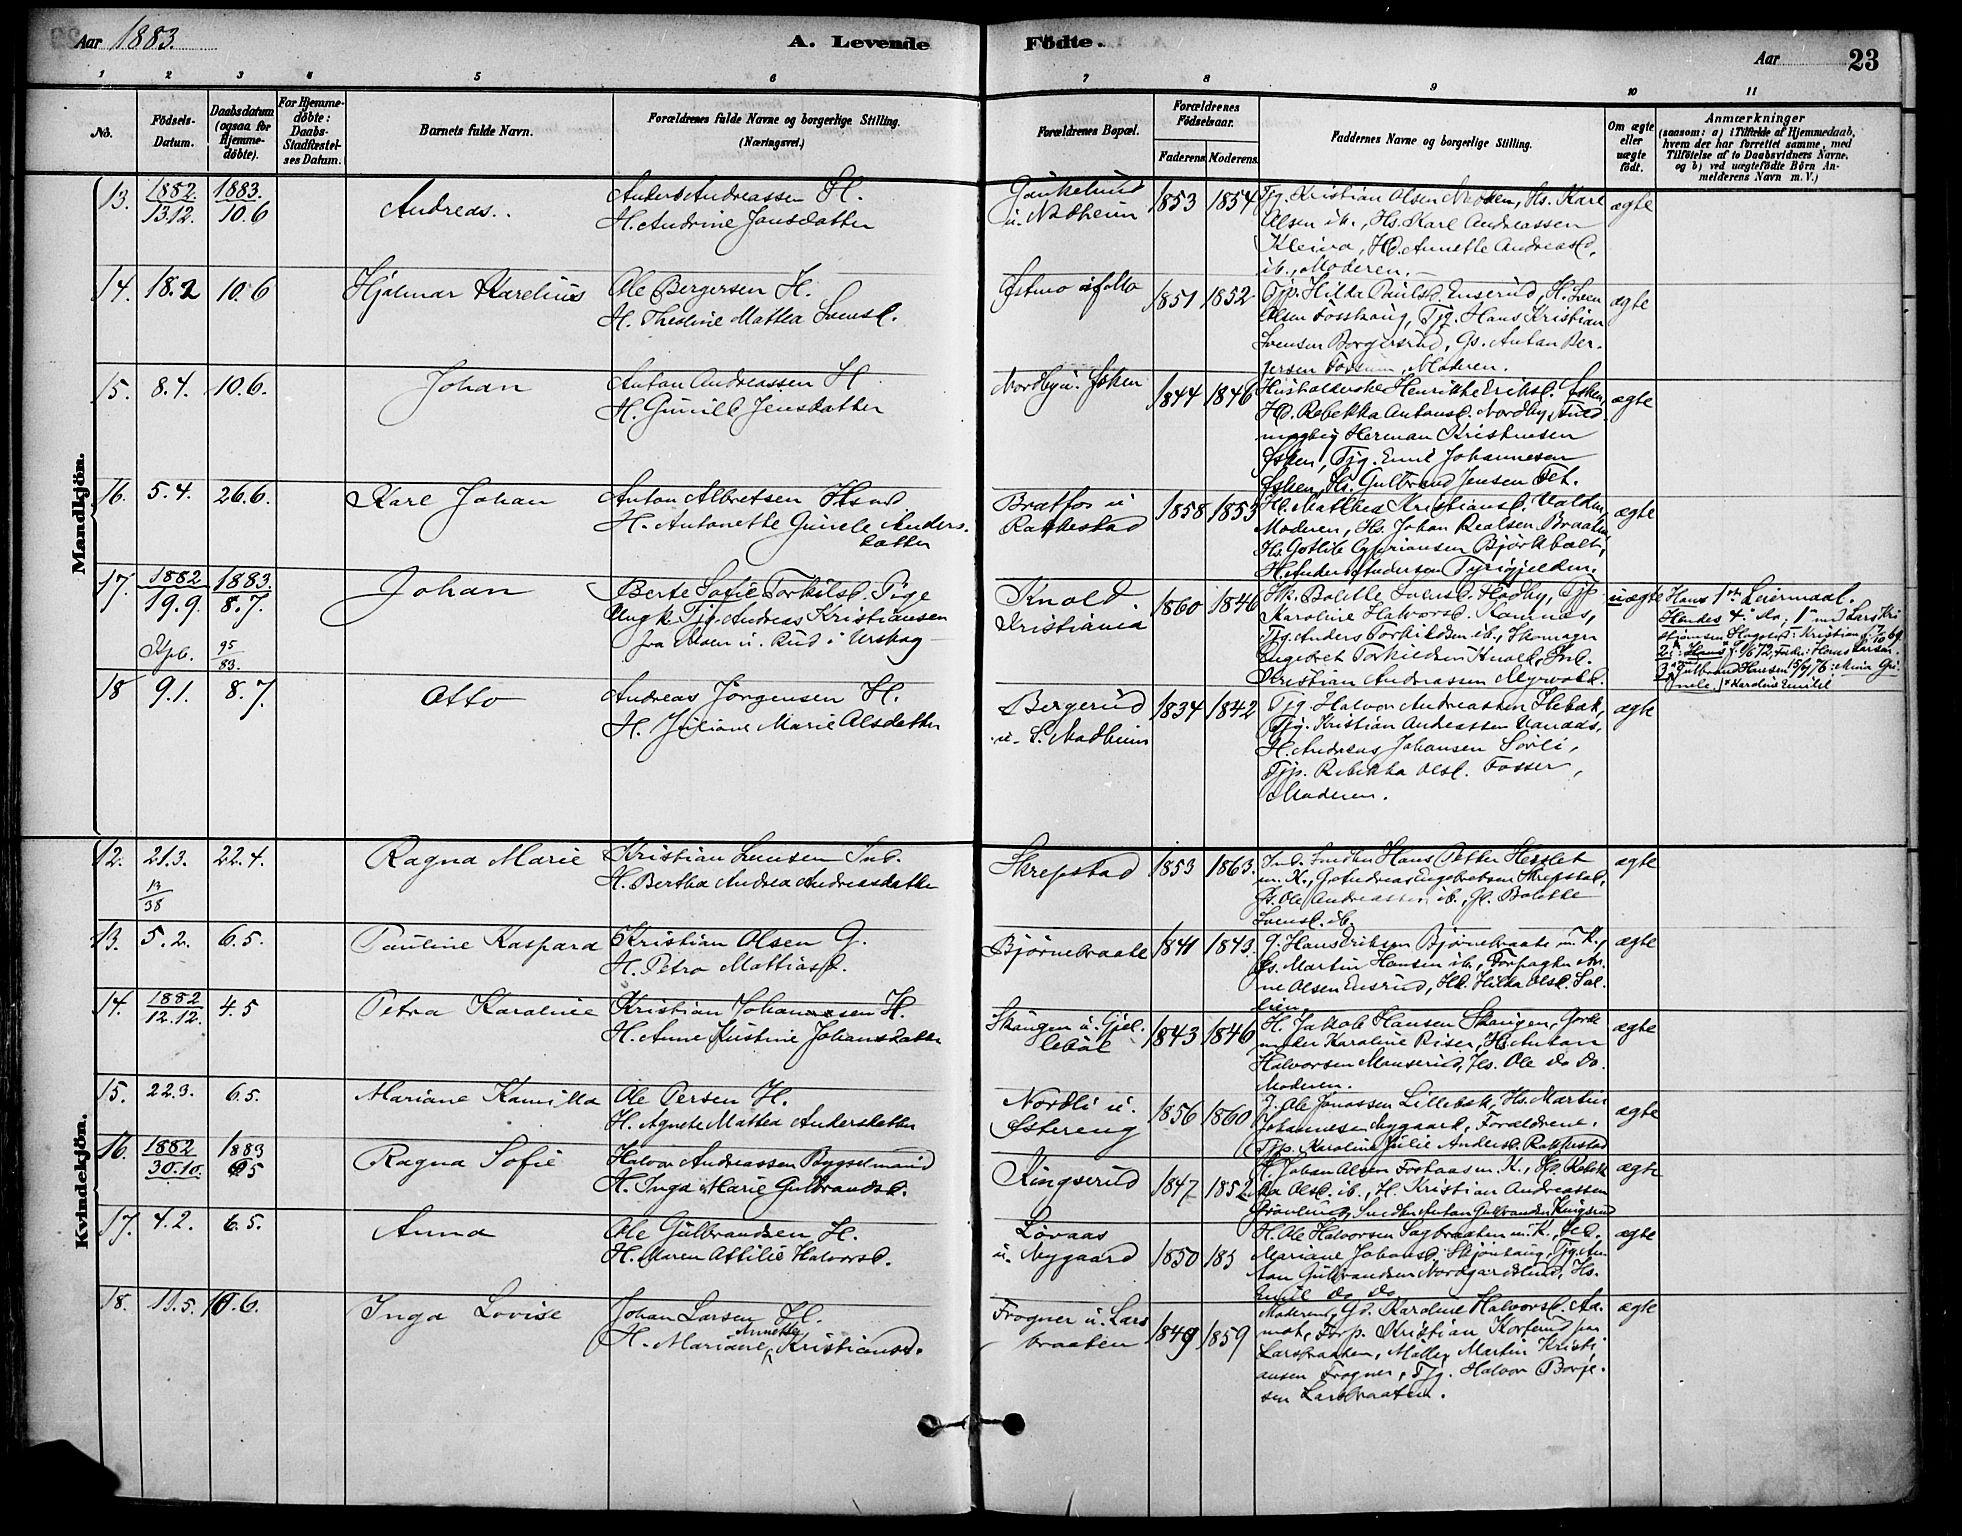 Aar 1883.
A. Levende
Födte.
Aar
23
1 2 3 4 5 6 7 8 9 10 11
No.
Födsels-
Datum.
Daabsdatum
(ogsaa for
Hjemme-
döbte).
For Hjemme-
döbte:
Daabs-
Stadfæstel-
ses Datum.
Barnets fulde Navn.
Forældrenes fulde Navne og borgerlige Stilling.
(Næringsvei.)
Forældrenes Bopæl.
Forældrenes
Födselsaar.
Faderens
Moderens
Faddernes Navne og borgerlige Stilling.
Om ægte
eller
uægte
födt.
Anmærkninger
(saasom: a) i Tilfælde af Hjemmedaab,
hvem der har forrettet samme, med
Tilföielse af to Daabsvidners Navne.
og b) ved uægtefödte Börn An-
melderens Navn m. V.)
Mandkjön.
13. 1882 1883.
13.12. 10.6
Andreas.
Anders Andreassen H.
H. Andrine Jansdatter
u. Nadheim
1853 1854
Tjg. Kristian Olsen, Hs. Karl
Olsen ib., Hs. Karl Andreassen
Kleiva, Hd. Annette Andreasd.
ib., Moderen.
ægte
14. 18.2 10.6
Hjalmar Karelius
Ole Bergersen H.
H. Thestine Mattea Svensd.
1851 1852
Tjp. Hilda Paulsd. Enserud, H. Sven
Olsen Fosshaug, Tjg. Hans Kristian
Svensen Borgersrud, Gs. Anton Ber-
gersen Fossum, Moderen.
ægte
15. 8.4. 10.6.
Johan
Anton Andreassen H
H. Gunild Jensdatter
Nordby u. Esken
1844 1846
Husholderske Henrikke Eriksd. Esken,
Hd. Rebekka Antonsd. Nordby, Fuld-
mægtig Herman Kristensen
Esken, Tjg. Emil Johannesen
Esken, Hs. Gulbrand Jensen Tet.
ægte
16. 5.4. 26.6.
Karl Johan
Anton Albretsen Hsmd
H. Antonette Gunilde Anders-
datter
Bratfos u
Rakkestad
1858 1853
H. Matthea Kristiansd.
Moderen, Hs. Johan Braaten
Hs. Gotlib Cypriansen Bjørkbæk,
H. Anders Andersen Tyrigjelden.
ægte
17. 1882 1883.
19.9. 8.7.
95
83.
Johan
Berte Sofie Torkilsd. Pige
Ungk. Tjg. Andreas Kristiansen
fra Moen u. Rud i Urskog
Knold
Kristiania
1860 1846
Bolette Svensd. Haaby, Tjp
Karoline Halvorsd. Kamnæs,
Tjg. Anders Torkildsen ib., Skomager
Engebret Torkildsen Knold, Inl.
Kristian Andreassen Myrvold.
uægte
Hans 1ste Leiermaal.
Hendes 4de Do, 1 med Lars Kri
18 9.1. 8.7.
Otto
Andreas Jörgensen H.
H. Juliane Marie Olsdatter
Bergerud
u. S. Nadheim
1834 1842
Tjg. Halvor Andreassen Hebæk,
Tjg. Kristian Andreassen
H. Andreas Johansen Sørli,
Tjp. Rebekka Olsd. Fosser,
Moderen.
ægte
Kvindekjön.
12. 21.3. 22.4.
13
38
Ragna Marie
Kristian Svensen Inl.
H. Bertha Andrea Andreasdatter
Skrepstad
1853 1863.
Inl. Smeden Hans Petter
m. K., G. Andreas Engebretsen Skrepstad,
Gs. Ole Andreassen ib., Jf. Bolette
Svensd. ib.
ægte
13. 5.2. 6.5.
Pauline Kaspara
Kristian Olsen G.
H. Petra Mattiasd.
Bjørnebraate
1841 1843.
G. Hans Eriksen Bjørnebraate m. K.,
Gs. Martin Hansen ib., Forpagter Ar-
ne Olsen Ensrud, Hk. Hilda Olsd. Sal-
lien.
ægte
14. 1882
12.12. 4.5
Petra Karoline
Kristian Johannesen H.
H. Anne Kirstine Johansdatter
Skaugen u. Gjel-
lebøl
1843 1846
H. Jakob Hansen Skaugen, Jorde
moder Karoline Riser, Hs. Anton
Halvorsen Monserud, Hs. Ole do do.
Moderen.
ægte
15. 22.3. 6.5.
Mariane Kamilla
Ole Persen H.
H. Agnete Mattea Andersdatter
Nordli u.
Østereng
1856 1860
G. Ole Jonassen Lillebæk, Hs. Martin
Johannesen Nygaard, Forældrene,
Tjp. Karoline Julie Andersd. Rakkestad
ægte
16. 1882 1883
30.10. 6.5
Ragna Sofie
Halvor Andreassen Bygselmand
H. Inga Marie Gulbrandsd.
Kingserud
1847 1852
H. Johan Olsen Forhaas m. K., Hd. Rebek-
ka Olsd. ib., H. Kristian Andreassen
Smeden Anton Gulbrandsen Kingsrud
ægte
17. 4.2. 6.5.
Anna
Ole Gulbrandsen H.
H. Maren Attilie Halvorsd.
Løvaas
u. Nygaard
1850 185
H. Ole Halvorsen Sagbraaten m. K.,
Mariane Johansd. Skjønhaug, Tjg. An-
ton Gulbrandsen Nordgardshud, Hs.
Emil do do
ægte
18. 11.5. 10.6.
Inga Lovise
Johan Larsen H.
Annette
H. Mariane Kristiansd.
Frogner u. Lars
braaten
1849 1859
Moderen, Gd. Karoline Halvorsd. Aa-
mot, Forp. Kristian Korserud paa
Larsbraaten, Møller Martin Kristi
ansen Frogner, Tjg. Halvor Borge-
sen Larsbraaten.
ægte